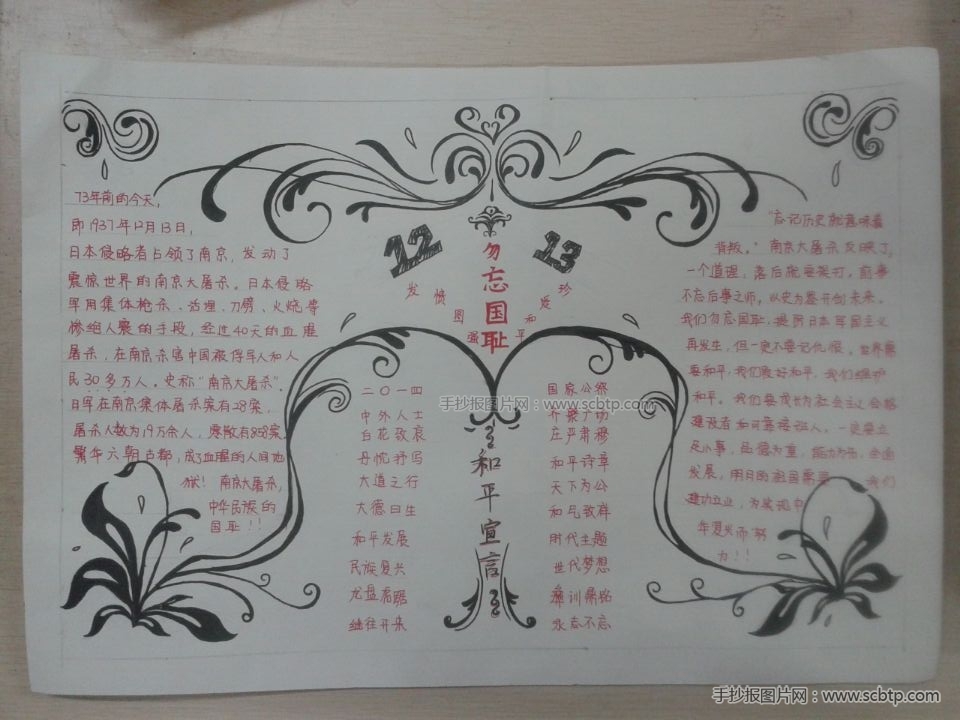 73年前的今天,
即1937年12月13日,
日本侵略者占领了南京,发动了
震惊世界的南京大屠杀。日本侵略
军用集体枪杀、活埋、刀劈、火烧等
惨绝人寰的手段,经过40天的血腥
屠杀,在南京杀害中国被俘军人和人
民30多万人。史称“南京大屠杀”。
日军在南京集体屠杀案有28案,
屠杀人数为19万余人,零散有858案。
繁华六朝古都,成了血腥的人间地
狱!南京大屠杀,
中华民族的
国耻!!
12 13
勿忘国耻
发愤图强
珍爱和平
手抄报图片网:www.scbtp.com
和平宣言
二〇一四
中外人士
白花致哀
丹忱抒写
大道之行
大德曰生
和平发展
民族复兴
龙盘虎踞
继往开来
国家公祭
齐聚广场
庄严肃穆
和平诗章
天下为公
和气致祥
时代主题
世代梦想
彝训鼎铭
永志不忘
“忘记历史就意味着
背叛。”南京大屠杀反映了
一个道理,落后就要挨打,前事
不忘后事之师。以史为鉴开创未来。
我们勿忘国耻,提防日本军国主义
再发生,但一定不要记仇恨。世界需
要和平,我们爱好和平,我们维护
和平。我们要成长为社会主义合格
建设者和可靠接班人,一定要立
足小事,品德为重,能力为书,全面
发展,用月的祖国需要 我们
建功立业,为实现中
华复兴而努
力!!
手抄报图片网:www.scbtp.com